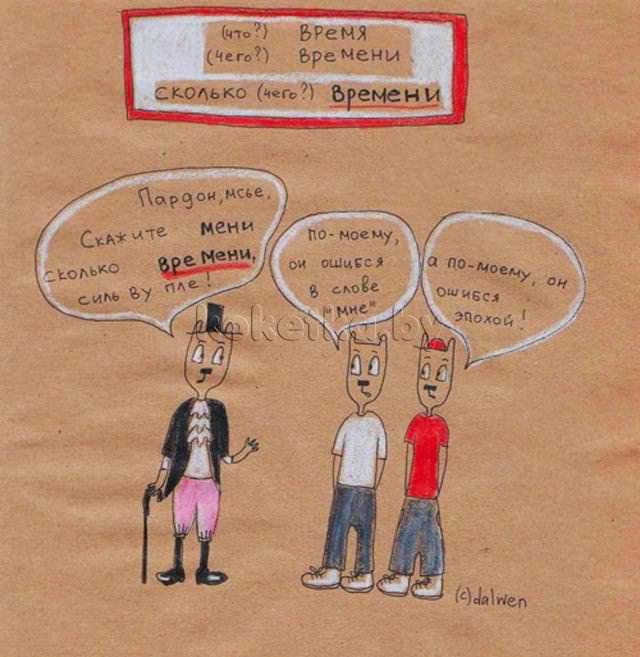 (что?) время
(чего?) времени
сколько (чего?) времени
Пардон, мсье,
Скажите мени
сколько времени,
силь ву пле!
по-моему,
он ошибся
в слове
"мне"
а по-моему, он
ошибся
эпохой!
koketka.by
(c)dalwen